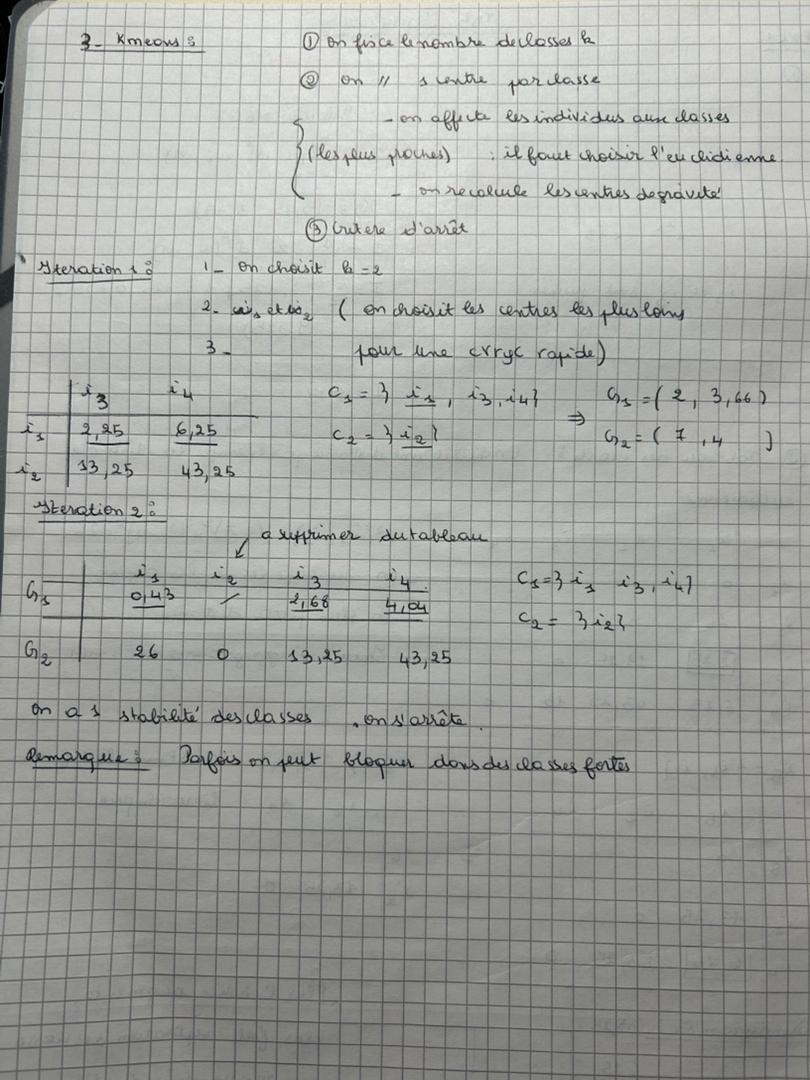 3- Kmeans :
① on fixe le nombre de classes k
② on // 1 centre par classe
- on affecte les individus aux classes
(les plus proches) : il faut choisir l'euclidienne
- on recalcule les centres de gravité
③ Critere d'arrêt
Iteration 1 :
1- on choisit k = 2
2- i1 et i2 ( on choisit les centres les plus loins
3- pour une cvrgc rapide)
i3 i4
i1 2,25 6,25
i2 13,25 43,25
C1 = { i1, i3, i4} ⇒ G1 = ( 2, 3,66 )
C2 = { i2 } G2 = ( 7, 4 )
Iteration 2 :
a supprimer du tableau
i1 i2 i3 i4
G1 0,43 / 2,68 4,04
G2 26 0 13,25 43,25
C1 = { i1 i3, i4}
C2 = { i2 }
on a 1 stabilité des classes, on s'arrête.
Remarque : Parfois on peut bloquer dans des classes fortes